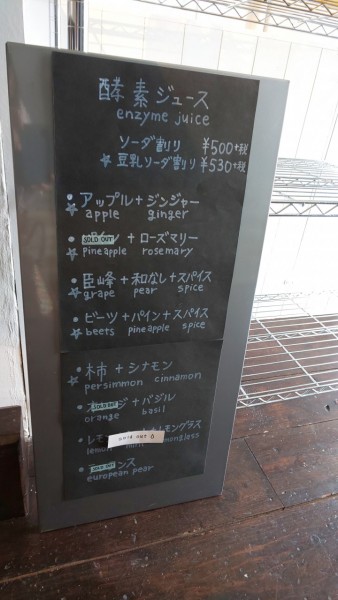 酵素ジュース
enzyme juice
ソーダ割り ¥500+税
☆豆乳ソーダ割り ¥530+税
・アップル+ジンジャー
☆ apple ginger
・SOLD OUT + ローズマリー
Pineapple rosemary
・臣峰+和なし+スパイス
☆grape pear spice
・ビーツ+パイン+スパイス
☆beets pineapple spice
・柿+シナモン
persimmon cinnamon
・SOLD OUT +バジル
orange basil
・レモン レモングラス
sold out
lemon lemongrass
・SOLD OUT ンス
european pear